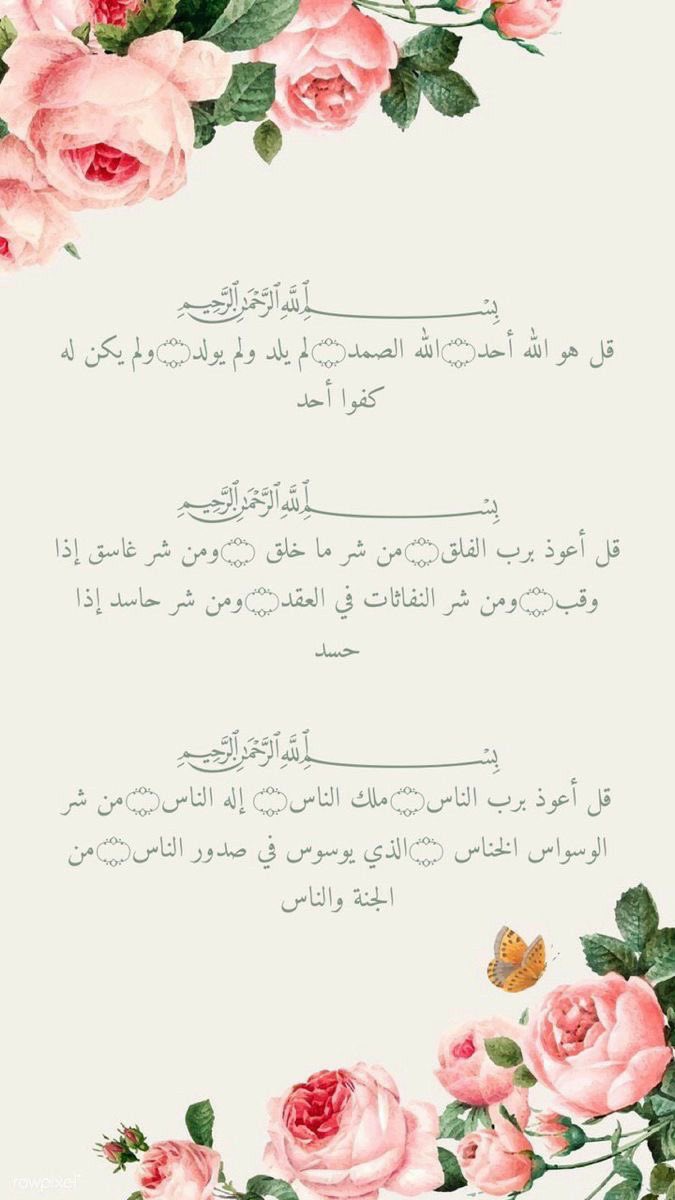 بِسْــــــــــمِ ٱللَّهِ ٱلرَّحْمَٰنِ ٱلرَّحِيمِ
قل هو الله أحد۝الله الصمد۝لم يلد ولم يولد۝ولم يكن له
كفوا أحد
بِسْــــــــــمِ ٱللَّهِ ٱلرَّحْمَٰنِ ٱلرَّحِيمِ
قل أعوذ برب الفلق۝من شر ما خلق ۝ومن شر غاسق إذا
وقب۝ومن شر النفاثات في العقد۝ومن شر حاسد إذا
حسد
بِسْــــــــــمِ ٱللَّهِ ٱلرَّحْمَٰنِ ٱلرَّحِيمِ
قل أعوذ برب الناس۝ملك الناس۝ إله الناس۝من شر
الوسواس الخناس ۝الذي يوسوس في صدور الناس۝من
الجنة والناس
rawpixel